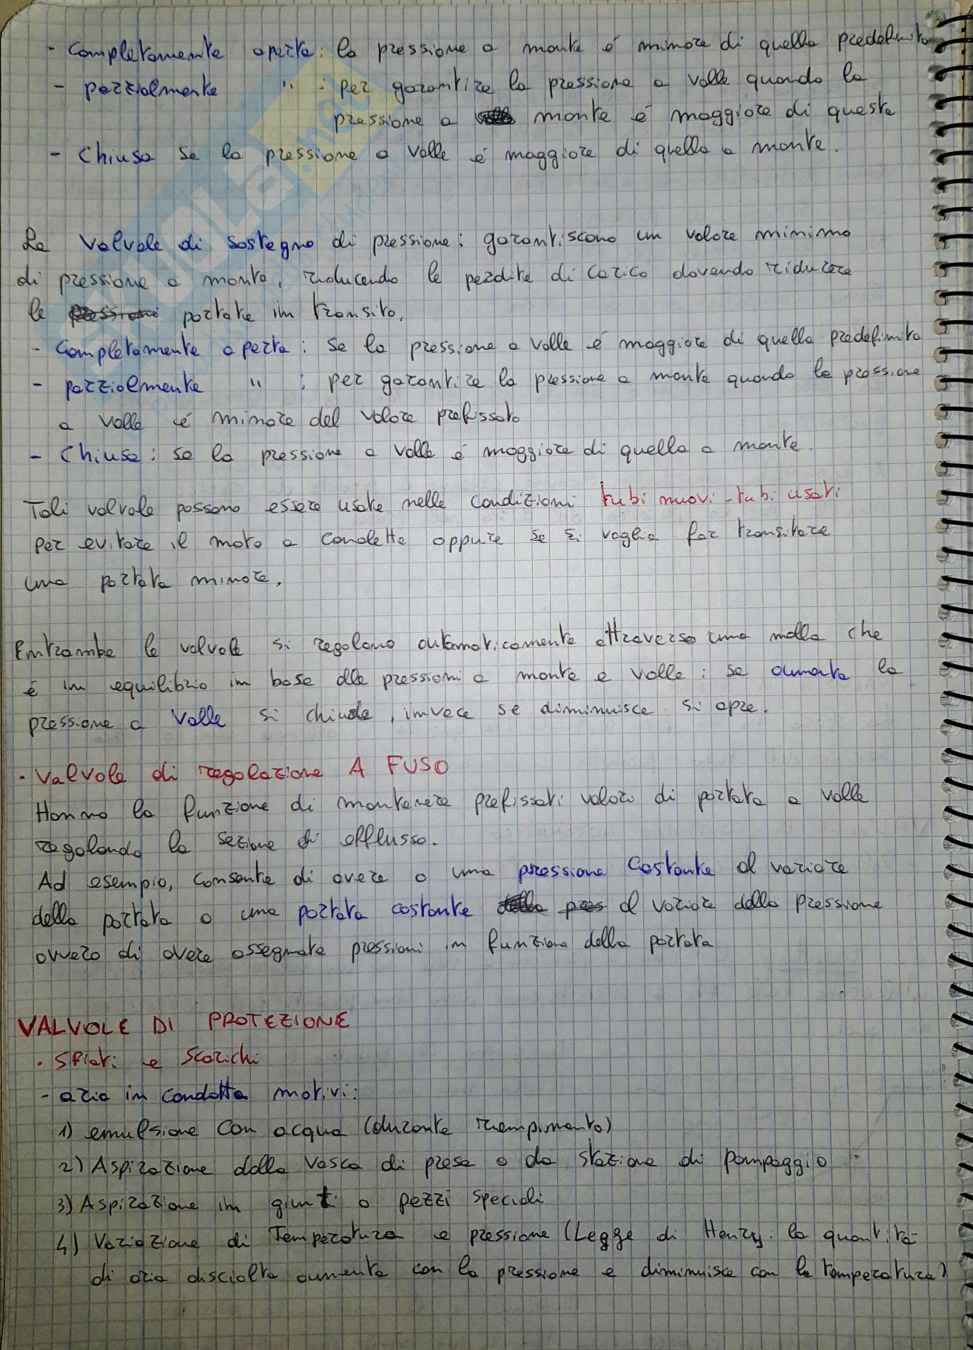 - Completamente aperta: la pressione a monte é minore di quella predefinita
- parzialmente " : per garantire la pressione a valle quando la
pressione a monte é maggiore di questa
- Chiusa se la pressione a valle é maggiore di quella a monte.
Le valvole di sostegno di pressione: garantiscono un valore minimo
di pressione a monte, riducendo le perdite di carico dovendo ridurre
le pressioni portate in transito.
- Completamente aperta: se la pressione a valle é maggiore di quella predefinita
- parzialmente " : per garantire la pressione a monte quando la pressione
a valle é minore del valore prefissato
- Chiusa: se la pressione a valle é maggiore di quella a monte.
Tali valvole possono essere usate nelle condizioni tubi nuovi-tubi usati
per evitare il moto a canaletta oppure se si voglia far transitare
una portata minore.
Entrambe le valvole si regolano automaticamente attraverso una molla che
é in equilibrio in base alle pressioni a monte e valle: se aumenta la
pressione a valle si chiude, invece se diminuisce si apre.
· Valvole di regolazione A FUSO
Hanno la funzione di mantenere prefissati valori di portata a valle
regolando la sezione di efflusso.
Ad esempio, consente di avere o una pressione costante al variare
della portata o una portata costante della pres al variare della pressione
ovvero di avere assegnate pressioni in funzione della portata
VALVOLE DI PROTEZIONE
· Sfiati e Scarichi
- aria in condotta motivi:
1) emulsione con acqua (durante riempimento)
2) Aspirazione dalla vasca di presa o da stazione di pompaggio
3) Aspirazione in giunti o pezzi speciali
4) Variazione di Temperatura e pressione (Legge di Henry: la quantità
di aria disciolta aumenta con la pressione e diminuisce con la temperatura)